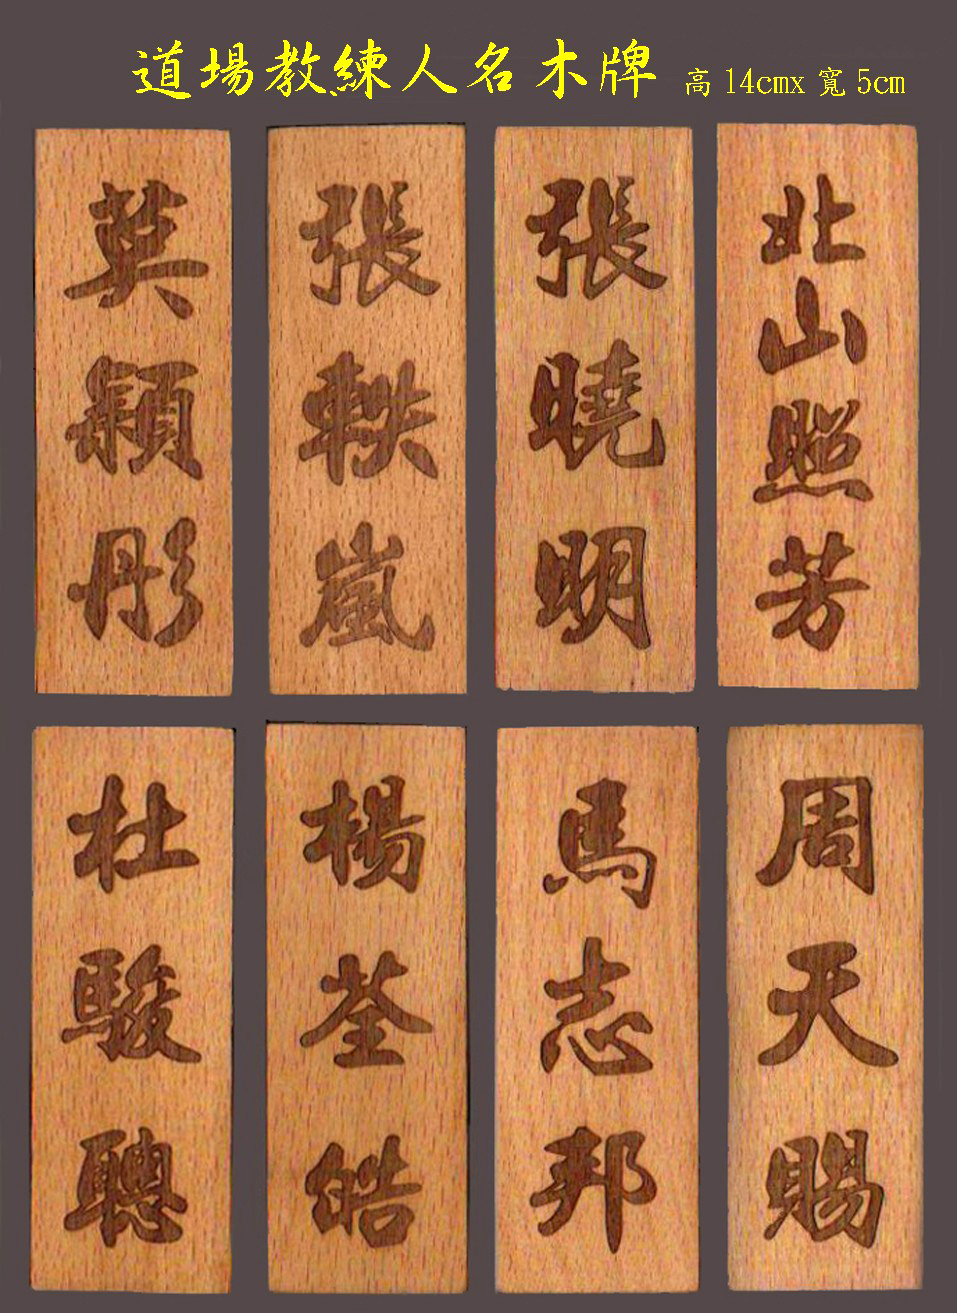 道場教練人名木牌 高14cmx寬5cm
莫穎彤
張軼嵐
張曉明
北山照芳
杜駿聰
楊荃皓
馬志邦
周天賜